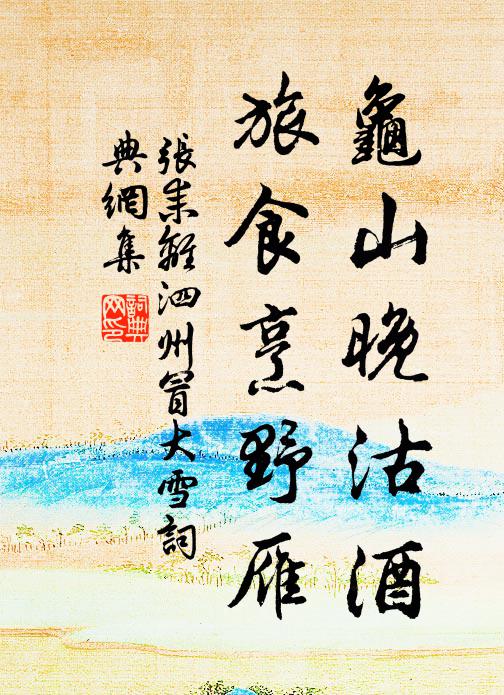 龜山晚沽酒
旅食烹野雁
張耒離泗州冒大雪詞
典網集
詞典網印